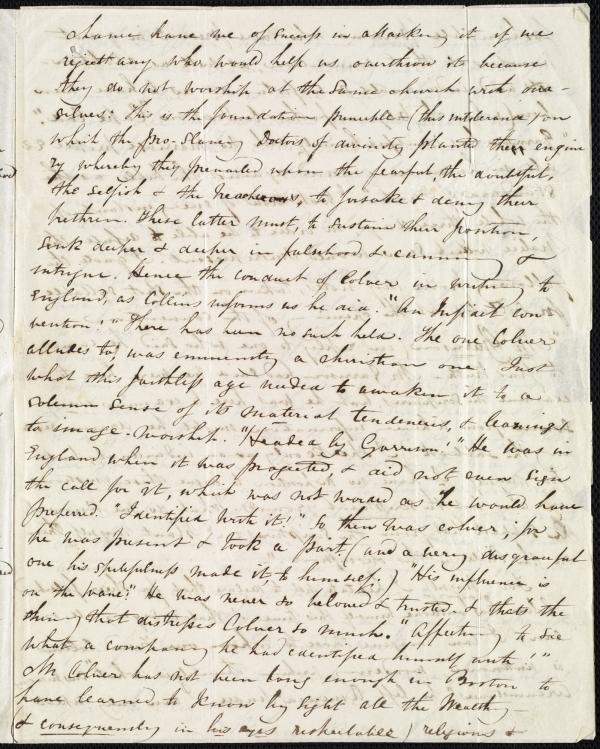 shame have we of success in attacking it if we
reject any who would help us overthrow it because
they do not worship at the same church with our-
selves: This is the foundation principle—(this intolerance) on
which the pro-slavery doctors of divinity planted their engine
ry whereby they prevailed upon the fearful, the doubtful,
the selfish & the treacherous, to forsake & deny their
brethren. These latter must, to sustain their position,
sink deeper & deeper in falsehood & cunning &
intrigue. Hence the conduct of Colver in writing to
England, as Collins informs us he did. "An Infidel con
vention!" There has been no such held. The one Colver
alludes to, was eminently a christian one. Just
what this faithless age needed to awaken it to a
solemn sense of its material tendencies, & leanings
to image-worship. "Headed by Garrison!" He was in
England when it was projected, & did not even sign
the call for it, which was not worded as he would have
preferred. "Identified with it!" So then was Colver; for
he was present & took a part, (and a very disgraceful
one his spitefulness made it to himself.) "His influence is
on the wane!" He was never so beloved & trusted. & that's the
thing that distresses Colver so much. "Affecting to see
what a company he had identified himself with!"
Mr Colver has not been long enough in Boston to
have learned to know by sight all the wealthy
& consequently in his eyes respectable) religious &